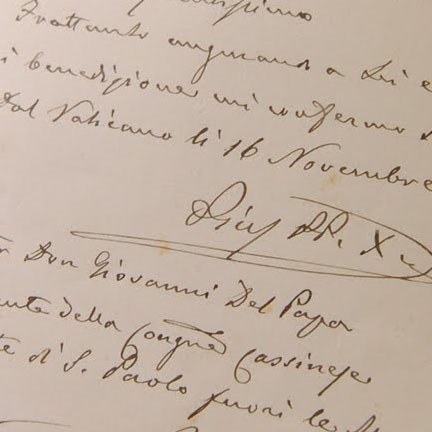 Frattanto augurando a Lei e
benedizione mi confermo
Dal Vaticano li 16 Novembre
Pius PP. X
Don Giovanni Del Papa
della Congne Cassinese
di S. Paolo fuori le